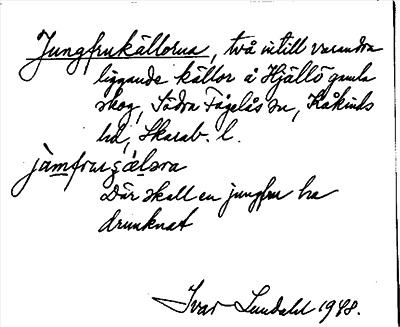 Jungfrukällorna, två intill varandra
liggande källor å Hjällö gamla
skog, Södra Fågelås sn, Kåkinds
hd, Skarab. l.
jɯmfrɯȿælɘra
Där skall en jungfru ha
drunknat
Ivar Lundahl 1948.